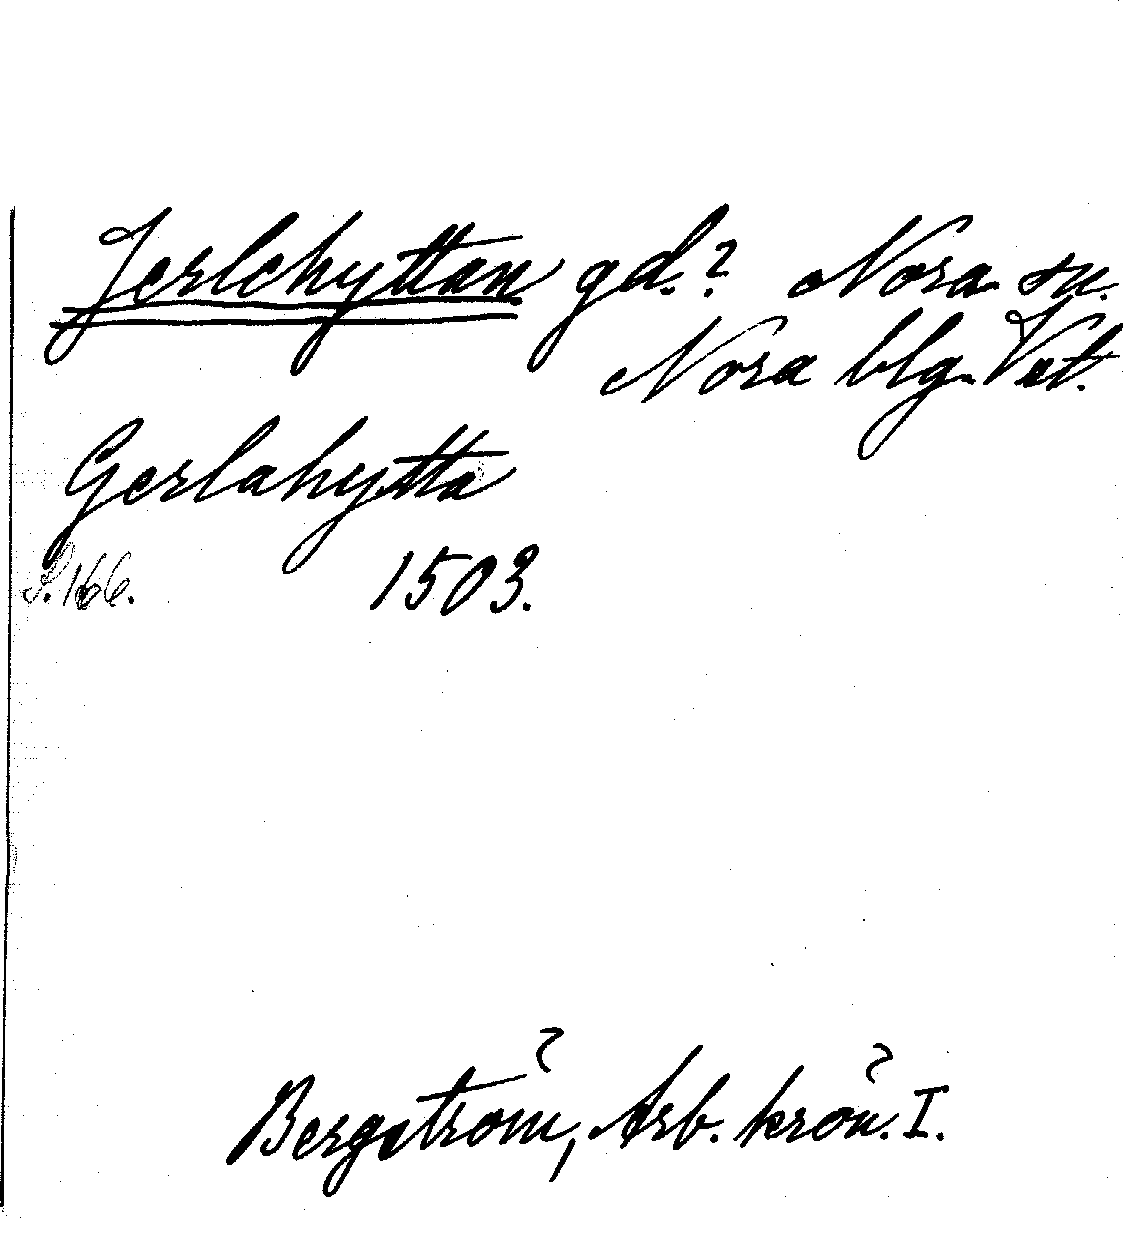 Jerlehyttan gd.? Nora sn.
Nora blg. Vstm.
Gerlahytta
S. 166. 1503.
Bergström, Arb. krön. I.